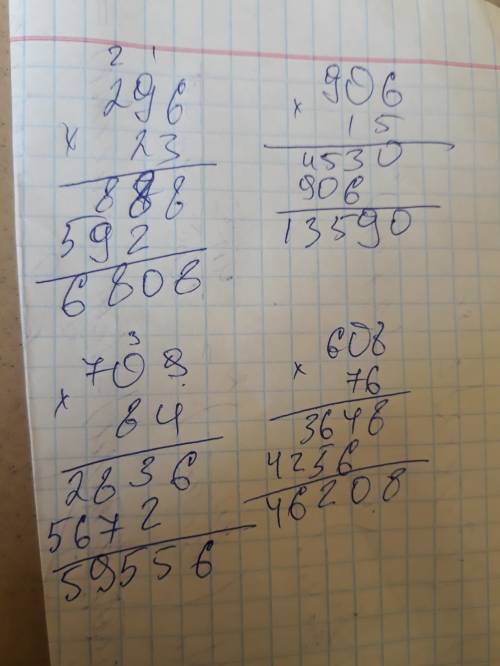 2 1
296
× 23
888
592
6808
906
× 15
4530
906
13590
3
709
× 84
2836
5672
59556
608
× 76
3648
4256
46208